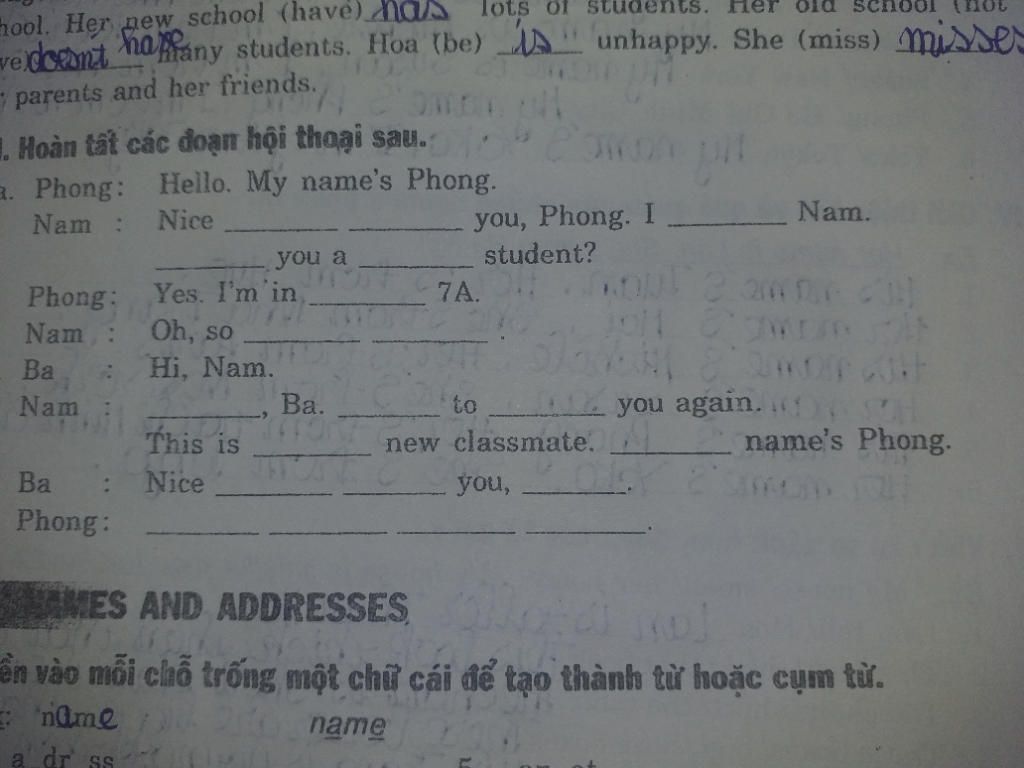 hool. Her new school (have) has lots of students. Her old school (not
ve) doesn't have many students. Hoa (be) is unhappy. She (miss) misses
parents and her friends.
. Hoàn tất các đoạn hội thoại sau.
a. Phong: Hello. My name's Phong.
Nam : Nice ________ ________ you, Phong. I ________ Nam.
________ you a ________ student?
Phong: Yes. I'm in ________ 7A.
Nam : Oh, so ________ ________.
Ba : Hi, Nam.
Nam : ________, Ba. ________ to ________ you again.
This is ________ new classmate. ________ name's Phong.
Ba : Nice ________ ________ you, ________.
Phong: ________ ________ ________ ________.
NAMES AND ADDRESSES
ền vào mỗi chỗ trống một chữ cái để tạo thành từ hoặc cụm từ.
: name name
a dr ss